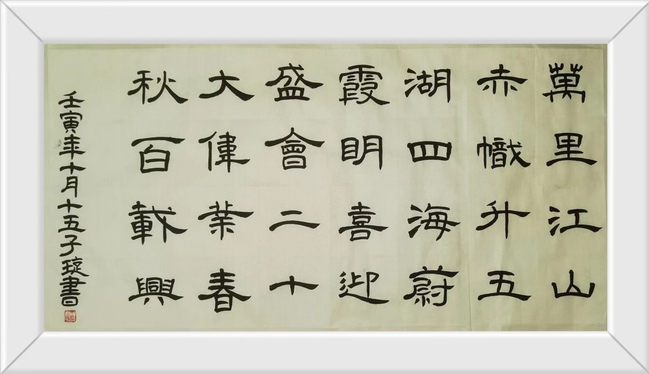 萬里江山
赤幟升五
湖四海蔚
霞明喜迎
盛會二十
大偉業春
秋百載興
壬寅年十月十五子璇書